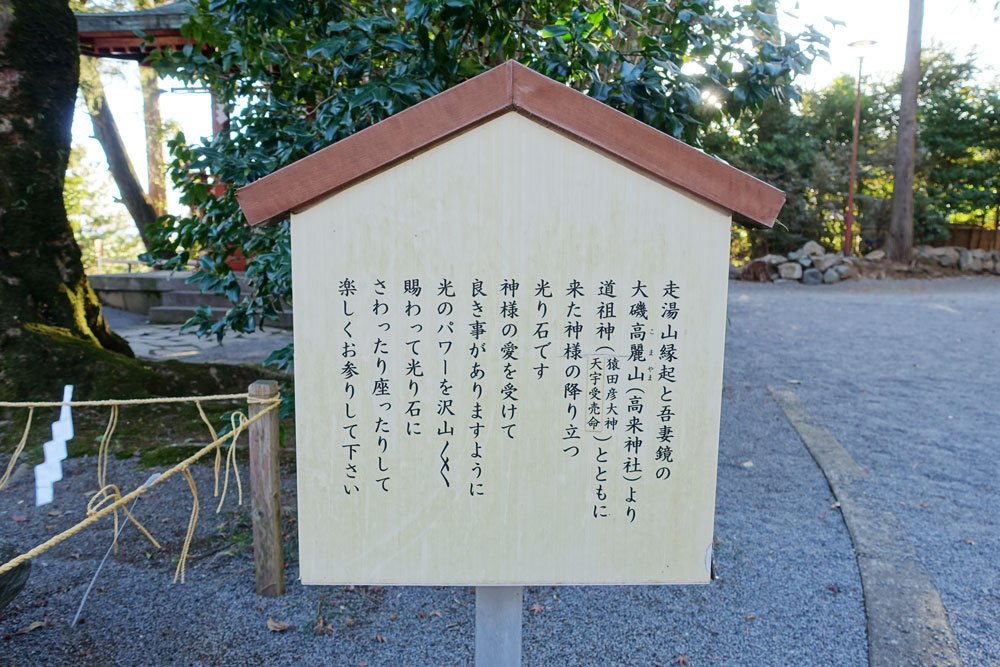 走湯山縁起と吾妻鏡の
大磯高麗山(高来神社)より
こま やま
道祖神(猿田彦大神 天宇受売命)とともに
来た神様の降り立つ
光り石です
神様の愛を受けて
良き事がありますように
光のパワーを沢山〳〵
賜わって光り石に
さわったり座ったりして
楽しくお参りして下さい